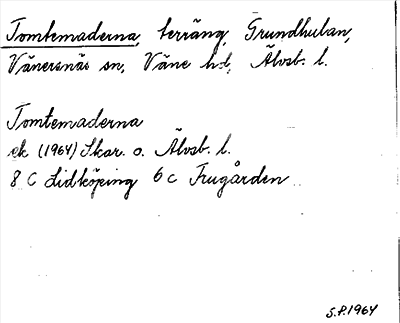 Tomtemaderna, terräng, Grundhulan,
Vänersnäs sn, Väne hd, Älvsb. l.
Tomtemaderna
ek (1964) Skar. o. Älvsb. l.
8 C Lidköping 6 c Frugården
S.P. 1964